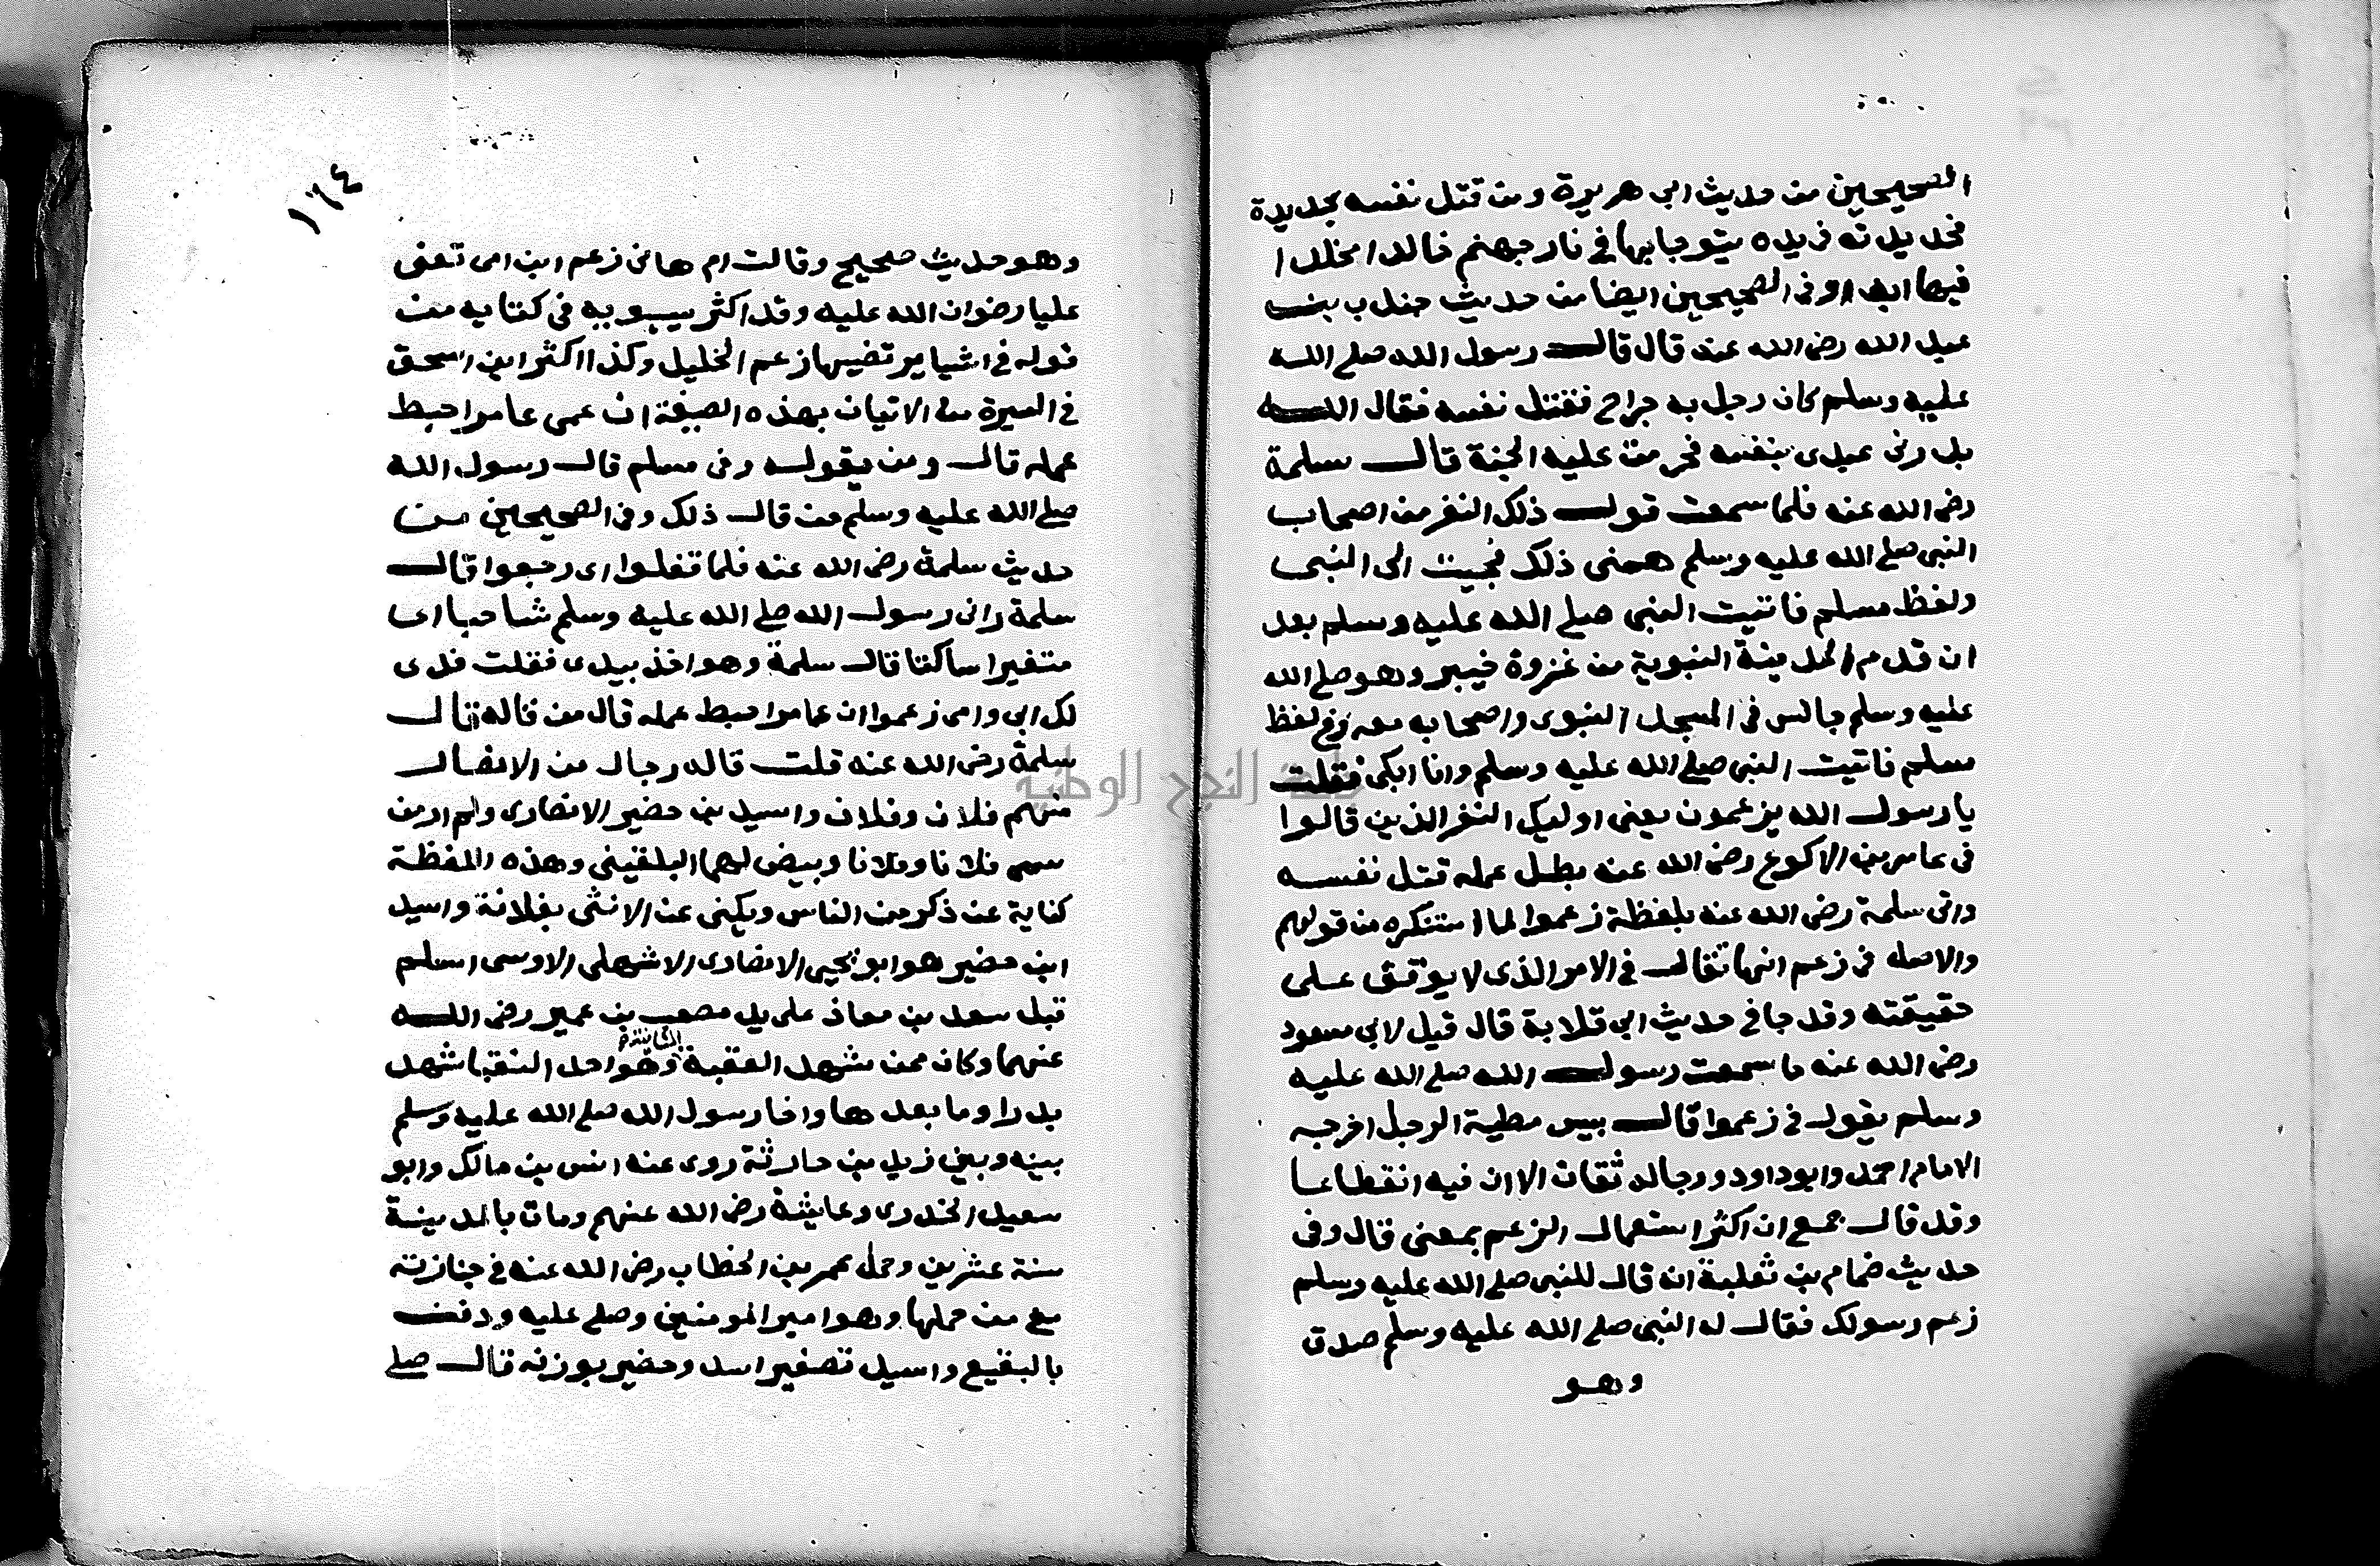 الصحيحين من حديث ابى هريرة ومن قتل نفسه بحديدة
فحديدته فى يده يتوجا بها فى نار جهنم خالدا مخلدا
فيها ابدا وفى الصحيحين ايضا من حديث جندب بن
عبد الله رضى الله عنه قال قال رسول الله صلى الله
عليه وسلم كان رجل به جراح فقتل نفسه فقال الله
بدرنى عبدى بنفسه فحرمت عليه الجنة قال سلمة
رضى الله عنه فلما سمعت قول ذلك النفر من اصحاب
النبى صلى الله عليه وسلم همنى ذلك فجيت الى النبى
ولفظ مسلم فاتيت النبى صلى الله عليه وسلم بعد
ان قدم المدينة النبوية من غزوة خيبر وهو صلى الله
عليه وسلم جالس فى المسجد النبوى واصحابه معه وفى لفظ
مسلم فاتيت النبى صلى الله عليه وسلم وانا ابكى فقلت
يا رسول الله يزعمون يعنى اوليك النفر الذين قالوا
فى عامر بن الاكوع رضى الله عنه بطل عمله قتل نفسه
واتى سلمة رضى الله عنه بلفظة زعموا لما استنكره من قولهم
والاصل فى زعم انها تقال فى الامر الذى لا يوقف على
حقيقته وقد جا فى حديث ابى قلابة قال قيل لابى مسعود
رضى الله عنه ما سمعت رسول الله صلى الله عليه
وسلم يقول فى زعموا قال بيس مطية الرجل اخرجه
الامام احمد وابو داود ورجاله ثقات الا ان فيه انقطاعا
وقد قال جمع ان اكثر استعمال الزعم بمعنى قال وفى
حديث ضمام بن ثعلبة انه قال للنبى صلى الله عليه وسلم
زعم رسولك فقال له النبى صلى الله عليه وسلم صدق
وهو
١٦٤
وهو حديث صحيح وقالت ام هانى زعم ابن امى تعنى
عليا رضوان الله عليه وقد اكثر سيبويه فى كتابه من
قوله فى اشيا يرتضيها زعم الخليل وكذا اكثر ابن اسحق
فى السيرة من الاتيان بهذه الصيغة ان عمى عامرا حبط
عمله قال ومن يقوله وفى مسلم قال رسول الله
صلى الله عليه وسلم من قال ذلك وفى الصحيحين من
حديث سلمة رضى الله عنه فلما قفلوا اى رجعوا قال
سلمة رانى رسول الله صلى الله عليه وسلم شاحبا اى
متغيرا ساكتا قال سلمة وهو اخذ بيدى فقلت فدى
لك ابى وامى زعموا ان عامرا حبط عمله قال من قاله قال
سلمة رضى الله عنه قلت قاله رجال من الانصار
منهم فلان وفلان واسيد بن حضير الانصارى ولم ار من
سمى فلانا وفلانا وبيض لهما البلقينى وهذه اللفظة
كناية عن ذكر من الناس ويكنى عن الانثى بفلانة واسيد
ابن حضير هو ابو يحيى الانصارى الاشهلى الاوسى اسلم
قبل سعد بن معاذ على يد مصعب بن عمير رضى الله
عنهما وكان ممن شهد العقبة الثانية وهو احد النقبا شهد
بدرا وما بعدها واخا رسول الله صلى الله عليه وسلم
بينه وبين زيد بن حارثة روى عنه انس بن مالك وابو
سعيد الخدرى وعايشة رضى الله عنهم ومات بالمدينة
سنة عشرين وحمل عمر بن الخطاب رضى الله عنه فى جنازته
مع من حملها وهو امير المومنين وصلى عليه ودفن
بالبقيع واسيد تصغير اسد وحضير بوزنه قال صلى
جامعة النجاح الوطنية